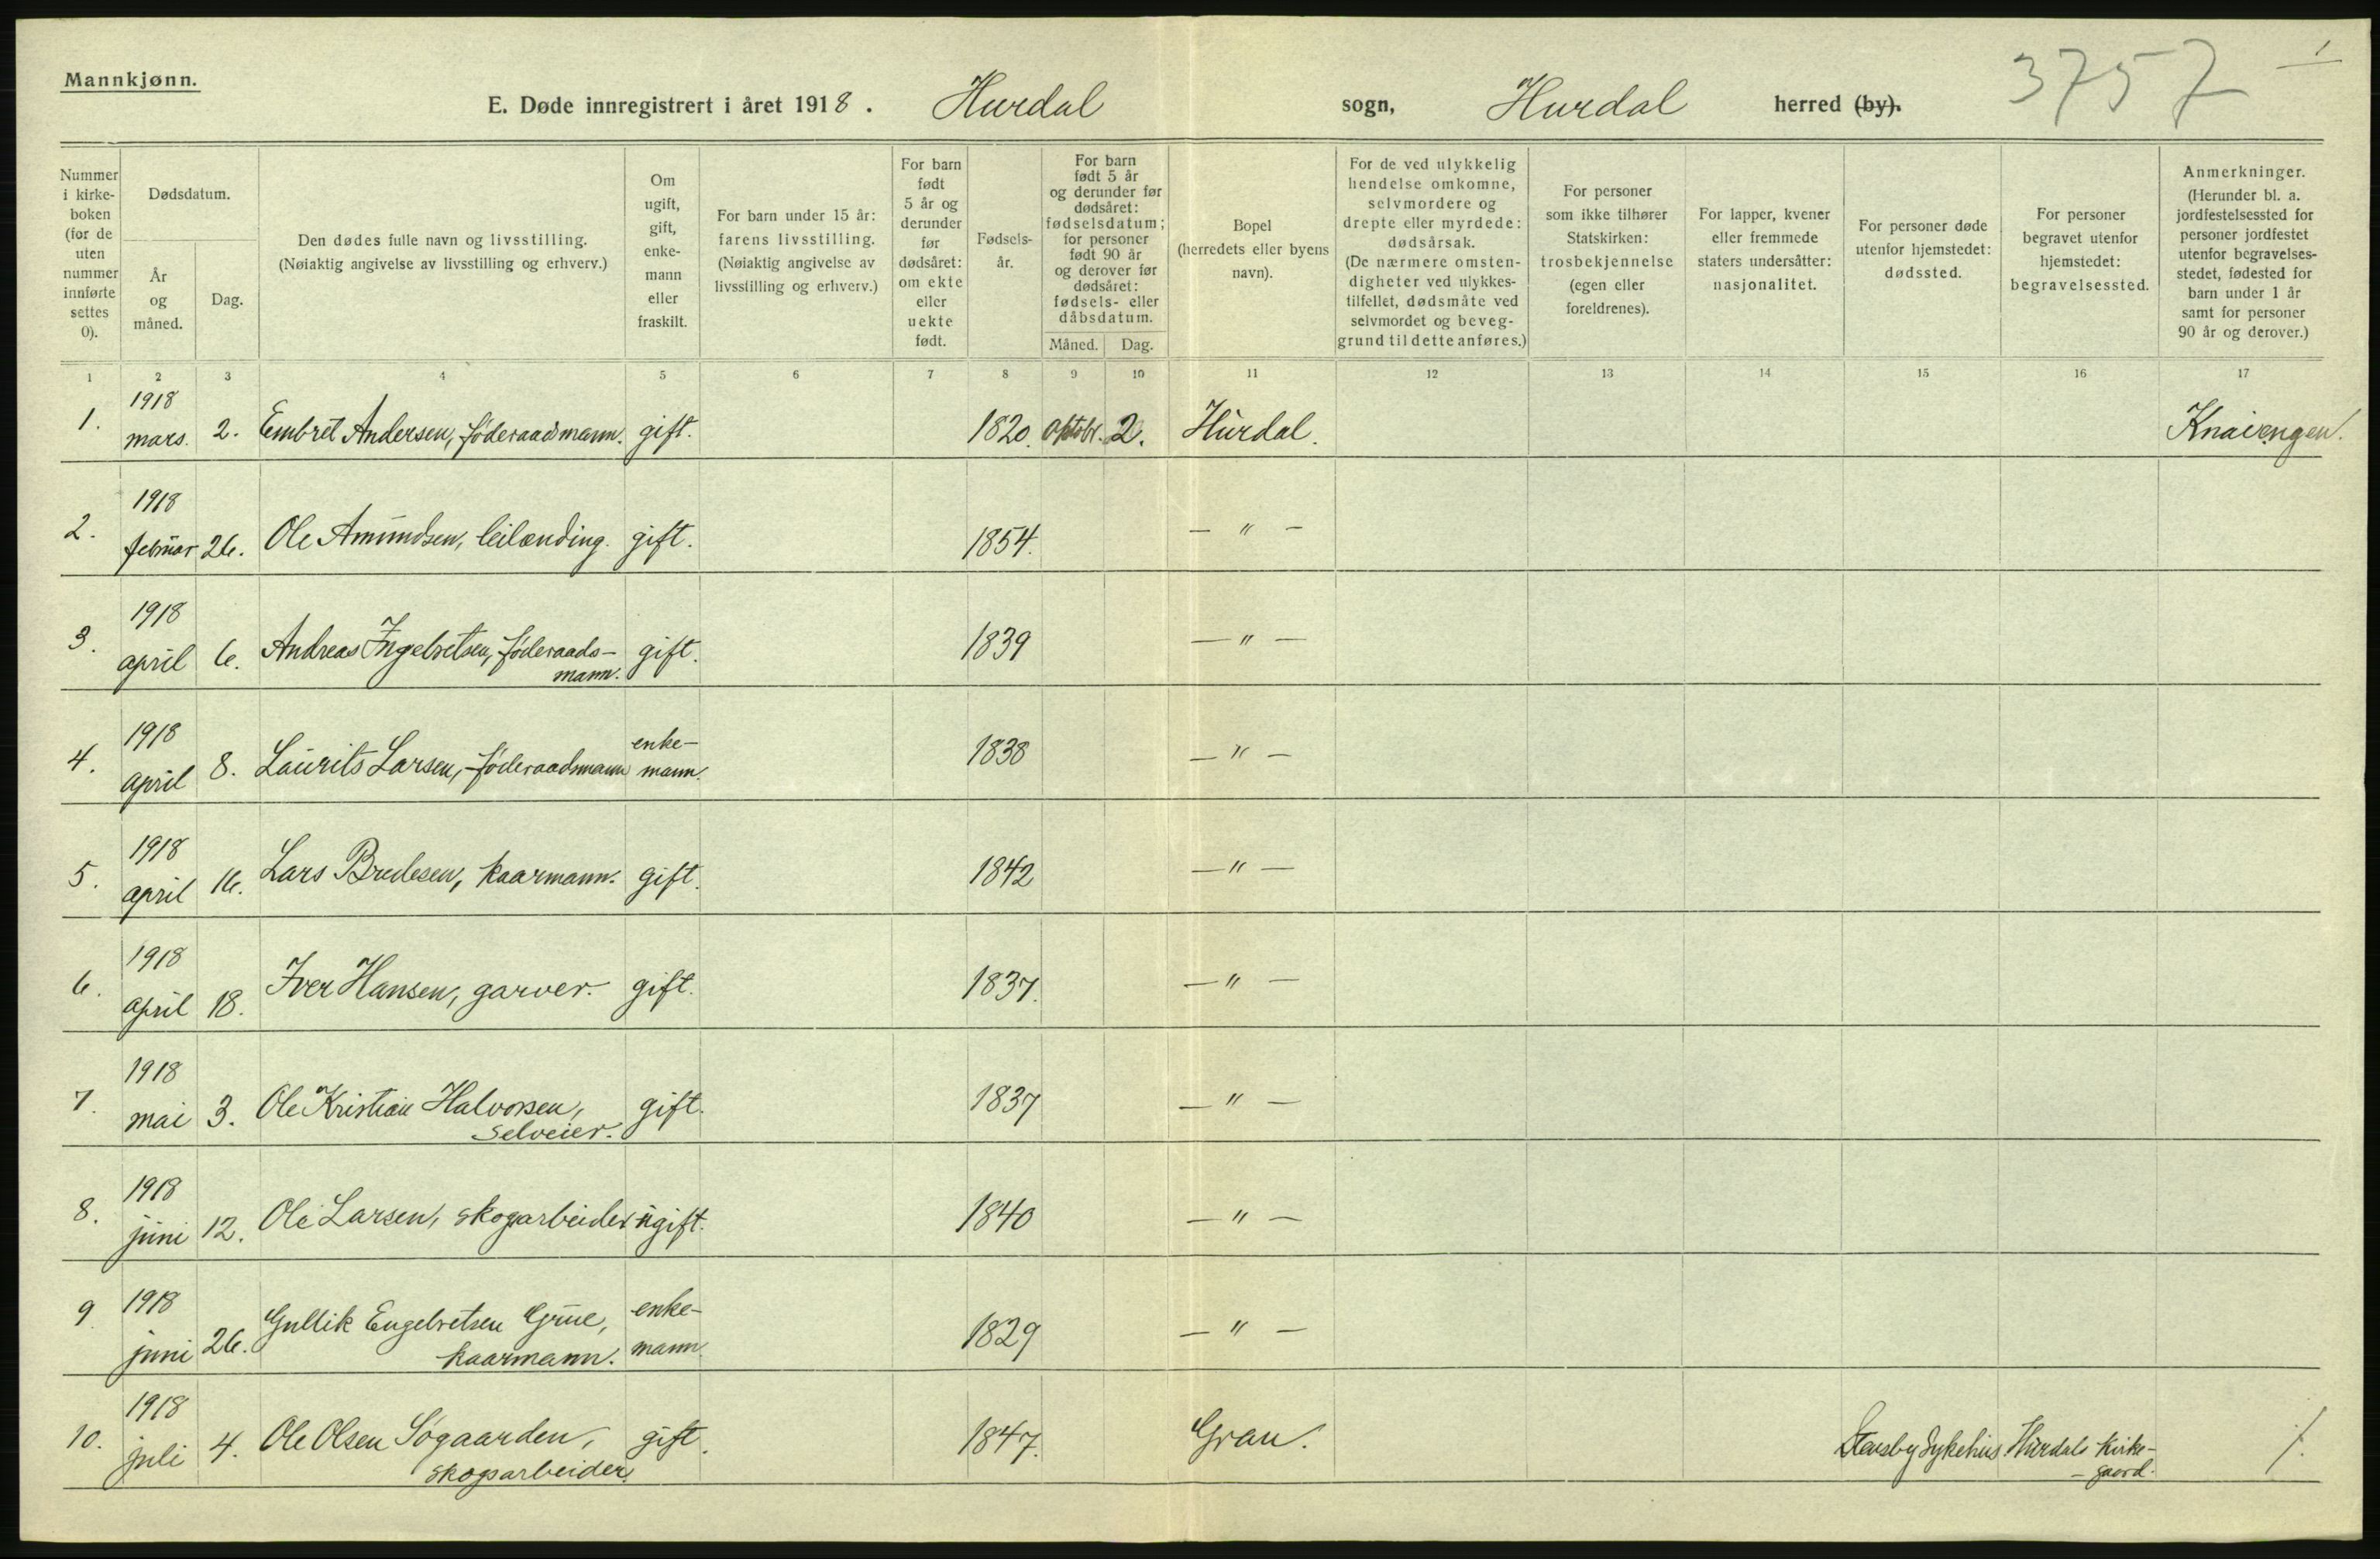 Mannkjønn.
E. Døde innregistrert i året 1918. Hurdal sogn, Hurdal herred (by). 3757 1
Nummer i kirke-boken (for de uten nummer innførte settes 0).
Dødsdatum.
År og måned.
Dag.
Den dødes fulle navn og livsstilling. (Nøiaktig angivelse av livsstilling og erhverv.)
Om ugift, gift, enke-mann eller fraskilt.
For barn under 15 år: farens livsstilling. (Nøiaktig angivelse av livsstilling og erhverv.)
For barn født 5 år og derunder før dødsåret: om ekte eller uekte født.
Fødsels-år.
For barn født 5 år og derunder før dødsåret: fødselsdatum; for personer født 90 år og derover før dødsåret: fødsels- eller dåbsdatum.
Måned. Dag.
Bopel (herredets eller byens navn).
For de ved ulykkelig hendelse omkomne, selvmordere og drepte eller myrdede: dødsårsak. (De nærmere omsten-digheter ved ulykkes-tilfellet, dødsmåte ved selvmordet og beveg-grund til dette anføres.)
For personer som ikke tilhører Statskirken: trosbekjennelse (egen eller foreldrenes).
For lapper, kvener eller fremmede staters undersåtter: nasjonalitet.
For personer døde utenfor hjemstedet: dødssted.
For personer begravet utenfor hjemstedet: begravelsessted.
Anmerkninger. (Herunder bl. a. jordfestelsessted for personer jordfestet utenfor begravelses-stedet, fødested for barn under 1 år samt for personer 90 år og derover.)
1 2 3 4 5 6 7 8 9 10 11 12 13 14 15 16 17
1918
1. mars. 2. Embret Andersen, føderaadmann. gift. 1820. oktobr. 2. Hurdal. Knaiengen.
1918
2. februar 26. Ole Amundsen, leilænding. gift. 1854. – " –
1918
3. april 6. Andreas Ingebretsen, føderaads- gift. 1839 – " –
mann.
1918 enke-
4. april 8. Laurits Larsen, føderaadmann mann. 1838 – " –
1918
5. april 16. Lars Bredesen, kaarmann. gift. 1842 – " –
1918
6. april 18. Iver Hansen, garver. gift. 1837. – " –
1918
7. mai 3. Ole Kristian Halvorsen, gift. 1837 – " –
selveier.
1918
8. juni 12. Ole Larsen, skogarbeider ugift. 1840 – " –
9 1918 Gullik Engebretsen Grue, enke-
juni 26. kaarmann. mann. 1829 – " –
1918
10. juli 4. Ole Olsen Søgaarden, gift. 1847. Gran. Stensby Sykehus Hurdals kirke- /.
skogsarbeider. – gaard.